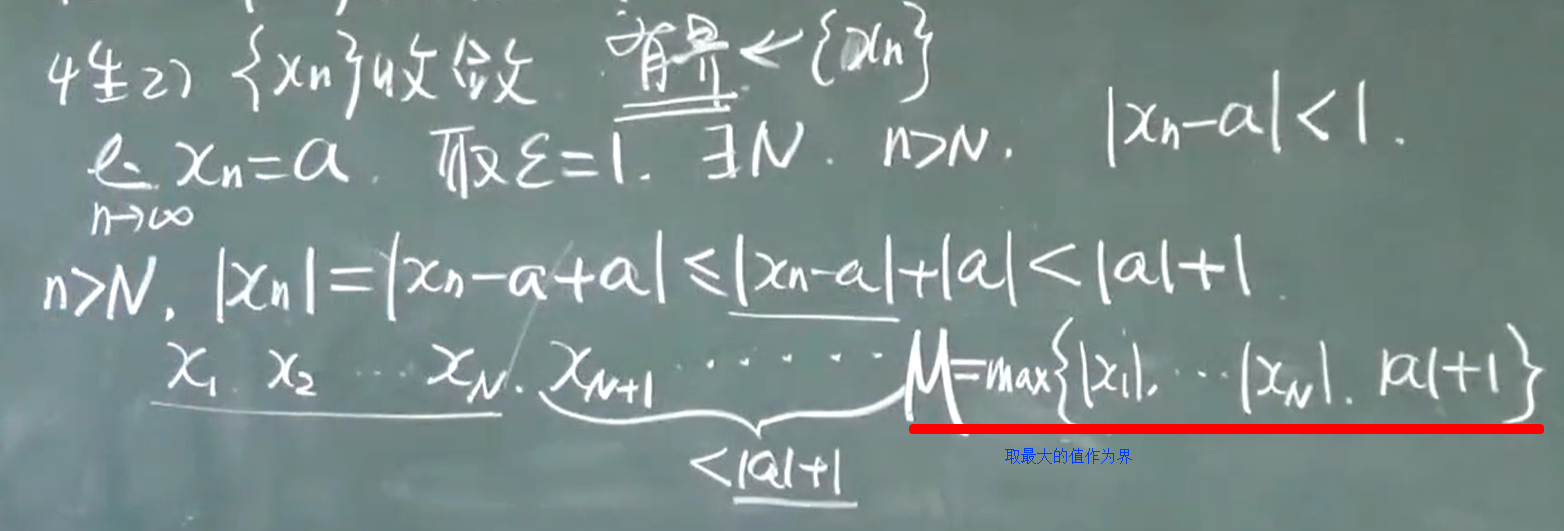 性2) {xn}收敛 有界 ← {xn}
lim xn=a. 取ε=1. ∃N. n>N. |xn-a|<1.
n→∞
n>N. |xn|=|xn-a+a|≤|xn-a|+|a|<|a|+1.
x1. x2 ... xN. xN+1 ...... M=max{|x1|. ... |xN|. |a|+1}
取最大的值作为界
<|a|+1